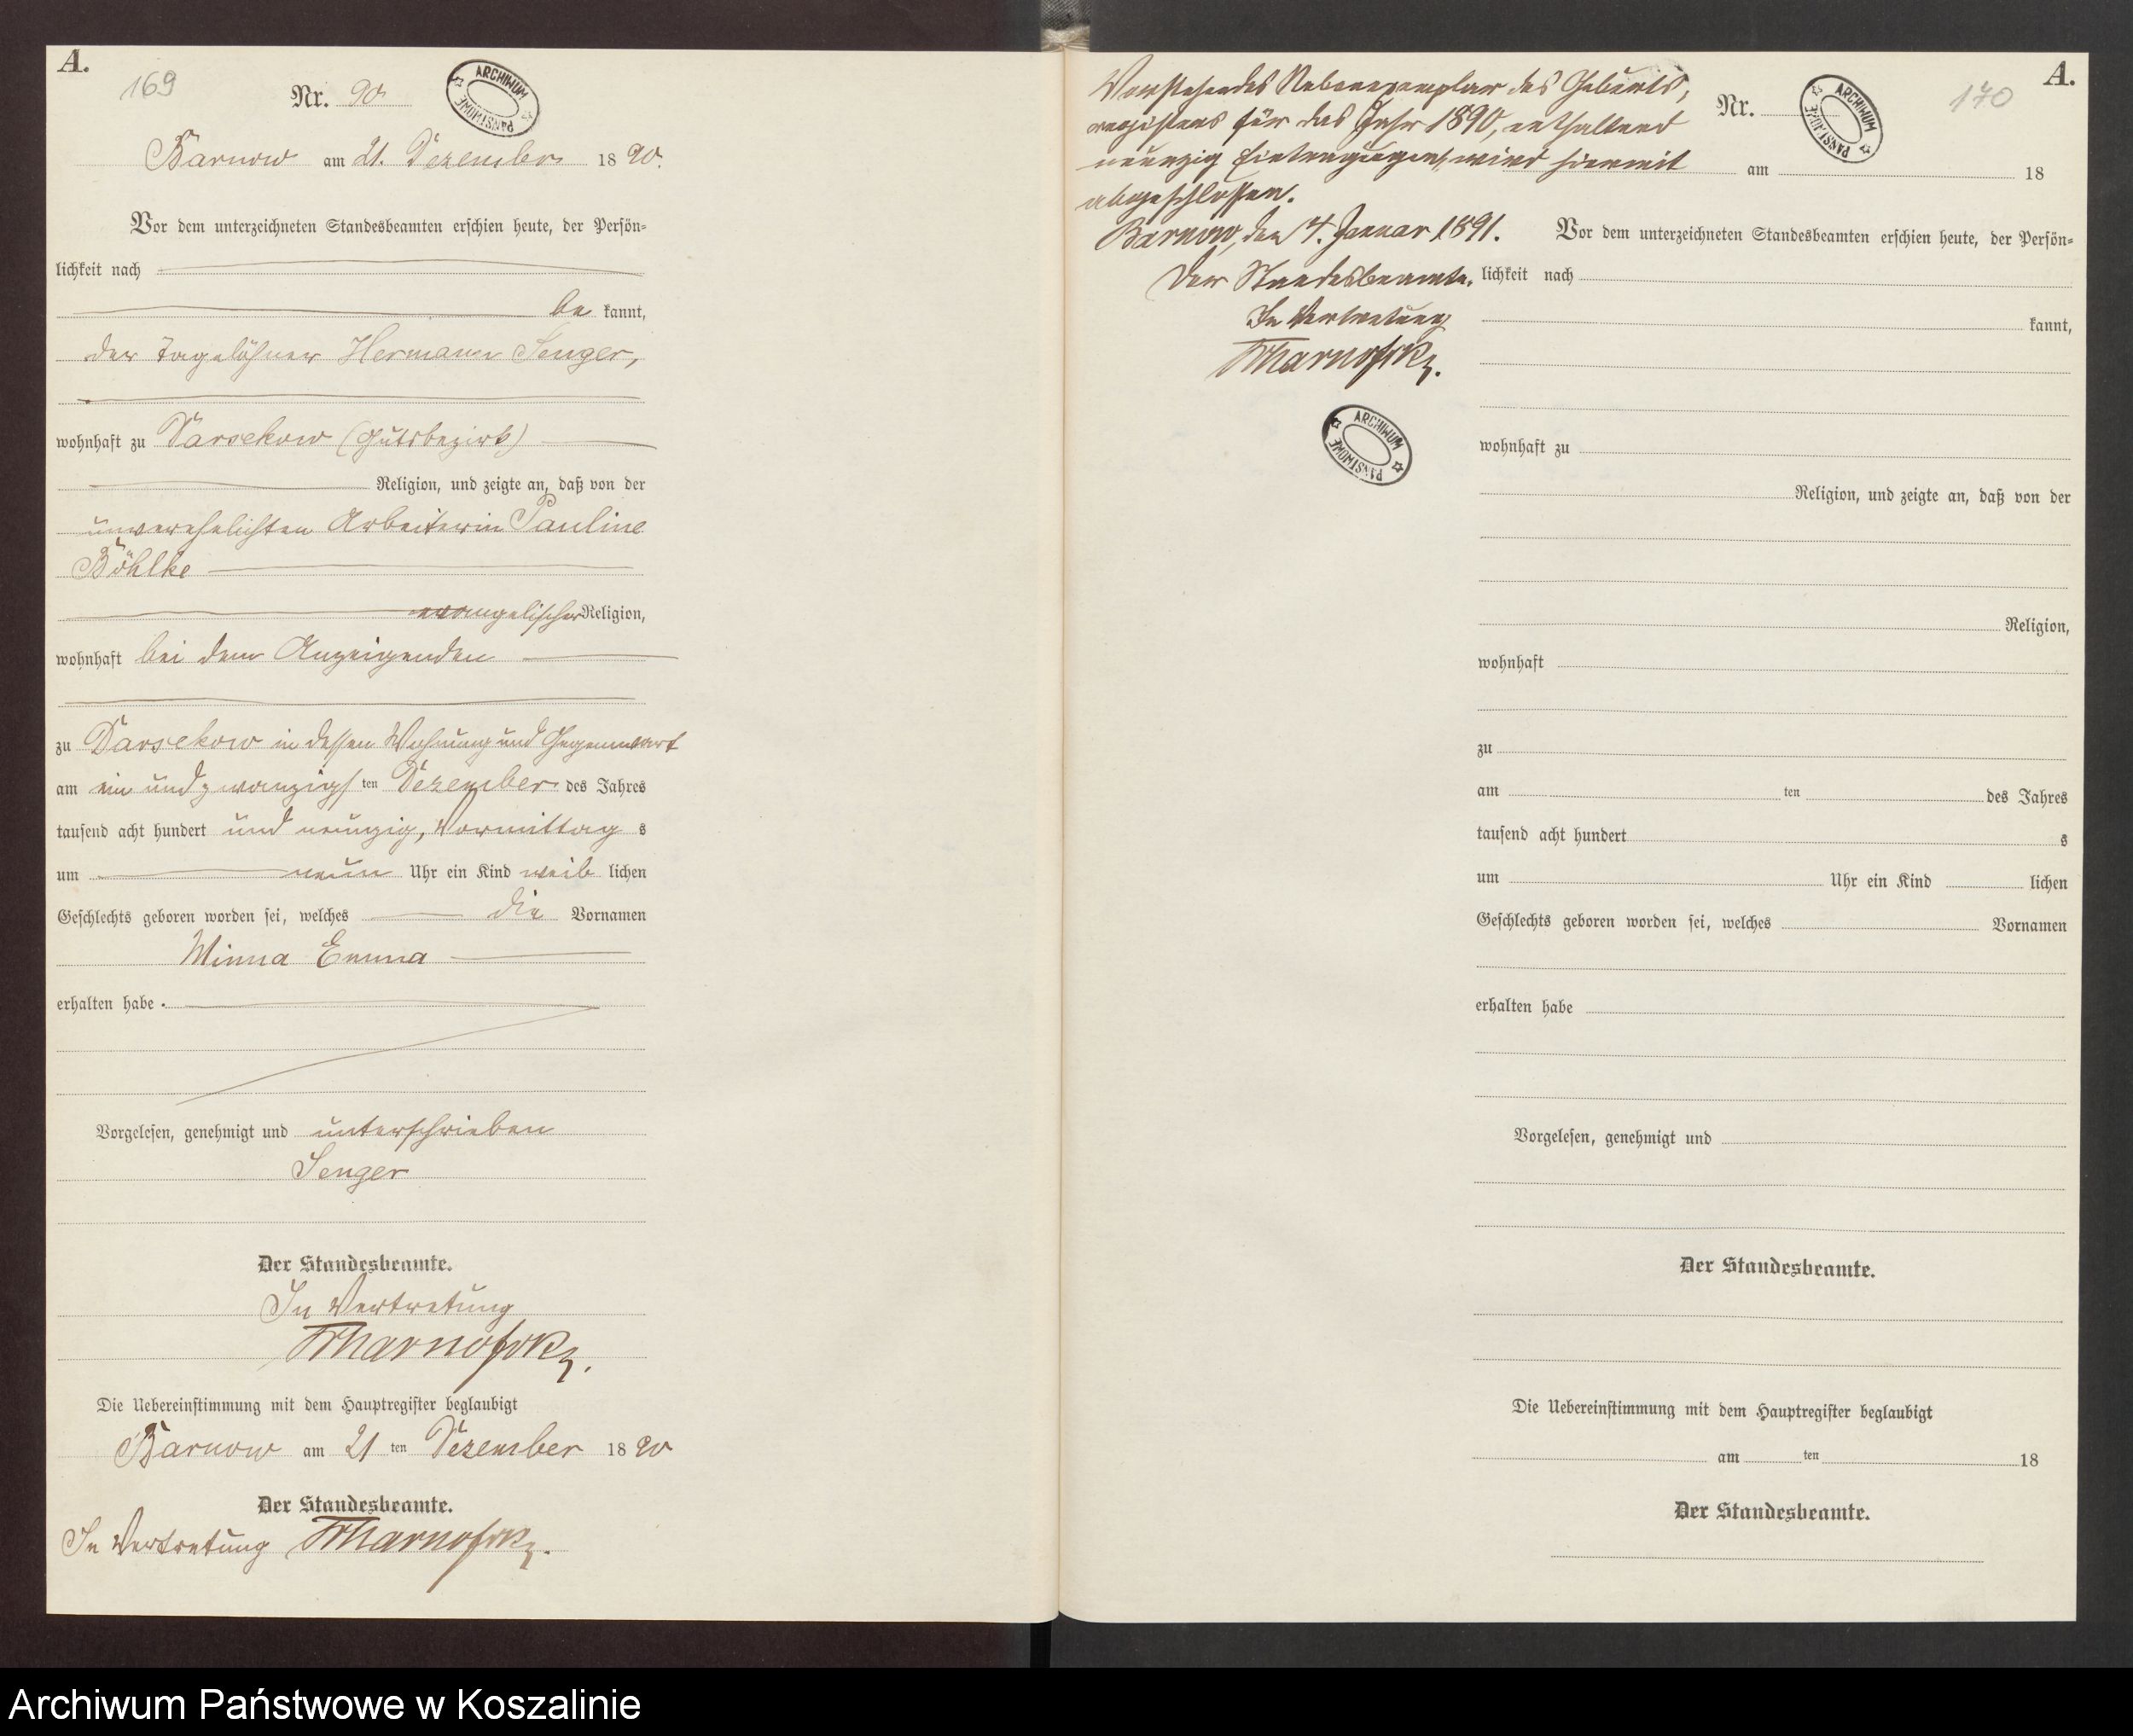 A.
169
Nr. 90
ARCHIWUM PAŃSTWOWE
Barnow am 21. Dezember 1890.
Vor dem unterzeichneten Standesbeamten erschien heute, der Persön=
lichkeit nach
be kannt,
der Tagelöhner Hermann Senger,
wohnhaft zu Darsekow (Gutsbezirk)
Religion, und zeigte an, daß von der
unverehelichten Arbeiterin Pauline
Böhlke
evangelischer Religion,
wohnhaft bei dem Anzeigenden
zu Darsekow in dessen Wohnung und Gegenwart
am ein und zwanzigsten Dezember des Jahres
tausend acht hundert und neunzig, Vormittags
um neun Uhr ein Kind weiblichen
Geschlechts geboren worden sei, welches die Vornamen
Minna Emma
erhalten habe.
Vorgelesen, genehmigt und unterschrieben
Senger
Der Standesbeamte.
In Vertretung
Die Uebereinstimmung mit dem Hauptregister beglaubigt
Barnow am 21 ten Dezember 1890
Der Standesbeamte.
In Vertretung
Vorstehendes Nebenexemplar des Geburts,
registers für das Jahr 1890, enthaltend
neunzig Eintragungen, wird hiermit
abgeschlossen.
Barnow, den 4. Januar 1891.
Der Standesbeamte.
In Vertretung
ARCHIWUM PAŃSTWOWE
A.
170
Nr.
ARCHIWUM PAŃSTWOWE
am 18
Vor dem unterzeichneten Standesbeamten erschien heute, der Persön=
lichkeit nach
kannt,
wohnhaft zu
Religion, und zeigte an, daß von der
Religion,
wohnhaft
zu
am ten des Jahres
tausend acht hundert s
um Uhr ein Kind lichen
Geschlechts geboren worden sei, welches Vornamen
erhalten habe
Vorgelesen, genehmigt und
Der Standesbeamte.
Die Uebereinstimmung mit dem Hauptregister beglaubigt
am ten 18
Der Standesbeamte.
Archiwum Państwowe w Koszalinie